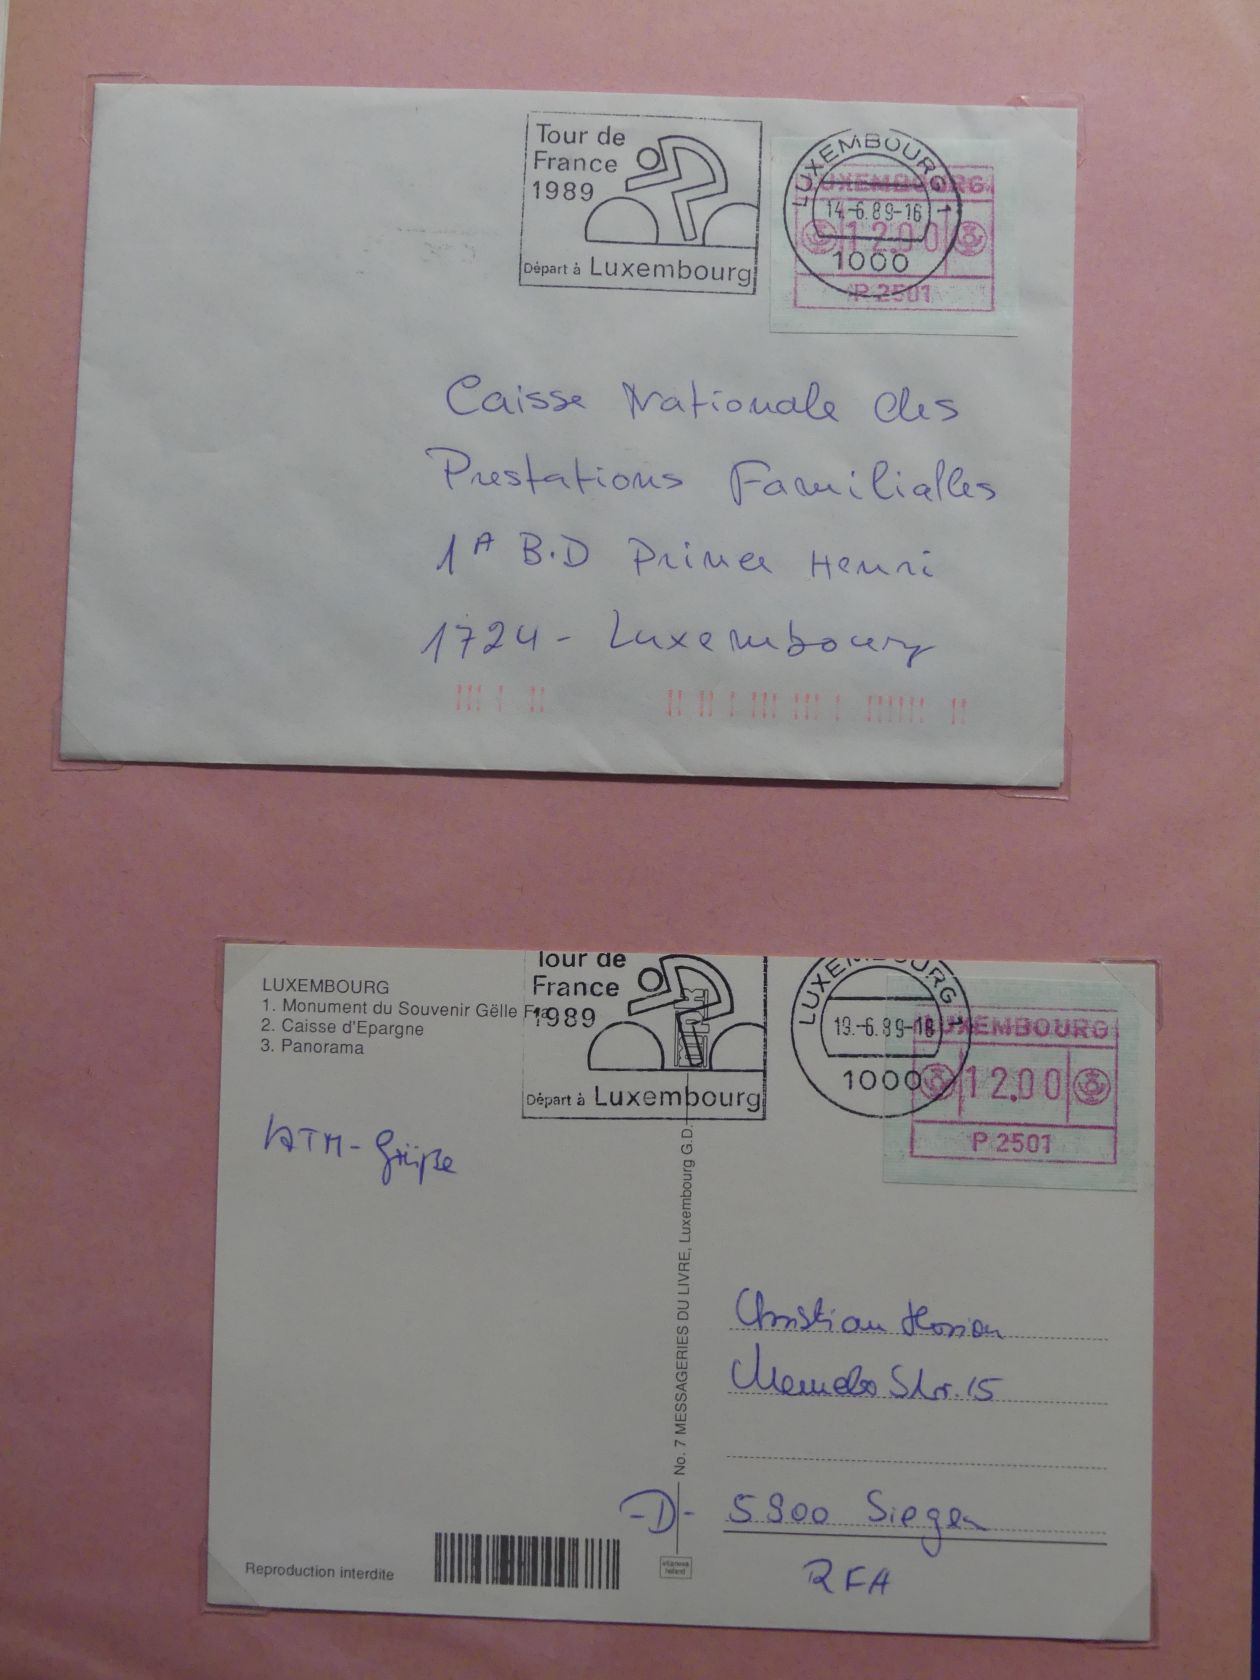 Tour de
France
1989
Départ à Luxembourg
LUXEMBOURG 1
14.-6.89-16
1000
LUXEMBOURG
12.00
P 2501
Caisse Nationale des
Prestations Familialles
1A B.D Prince Henri
1724 - Luxembourg
LUXEMBOURG
1. Monument du Souvenir Gëlle Fra
2. Caisse d'Epargne
3. Panorama
Tour de
France
1989
Départ à Luxembourg
LUXEMBOURG 1
19.-6.89-18
1000
LUXEMBOURG
12.00
P 2501
ATM - Grüße
No. 7 MESSAGERIES DU LIVRE, Luxembourg G.D.
Christian
Str. 15
-D- 5900 Siegen
RFA
Reproduction interdite